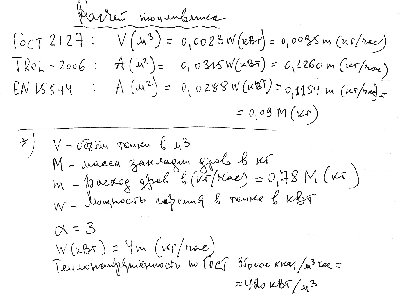 Расчёт топливника
ГОСТ 2127: V(м³) = 0,0023 W(кВт) = 0,0095 m (кг/час)
TROL-2006: A(м²) = 0,0315 W(кВт) = 0,1260 m (кг/час)
EN 15544: A(м²) = 0,0288 W(кВт) = 0,1154 m (кг/час) =
= 0,09 M (кг)
*) V - объём топки в м3
M - масса закладки дров в кг
m - расход дров в (кг/час) = 0,78 M (кг)
W - мощность горения в топке в кВт
α = 3
W(кВт) = 4m (кг/час)
Теплонапряжённость по ГОСТ ккал/м³час =
= 420 кВт/м3